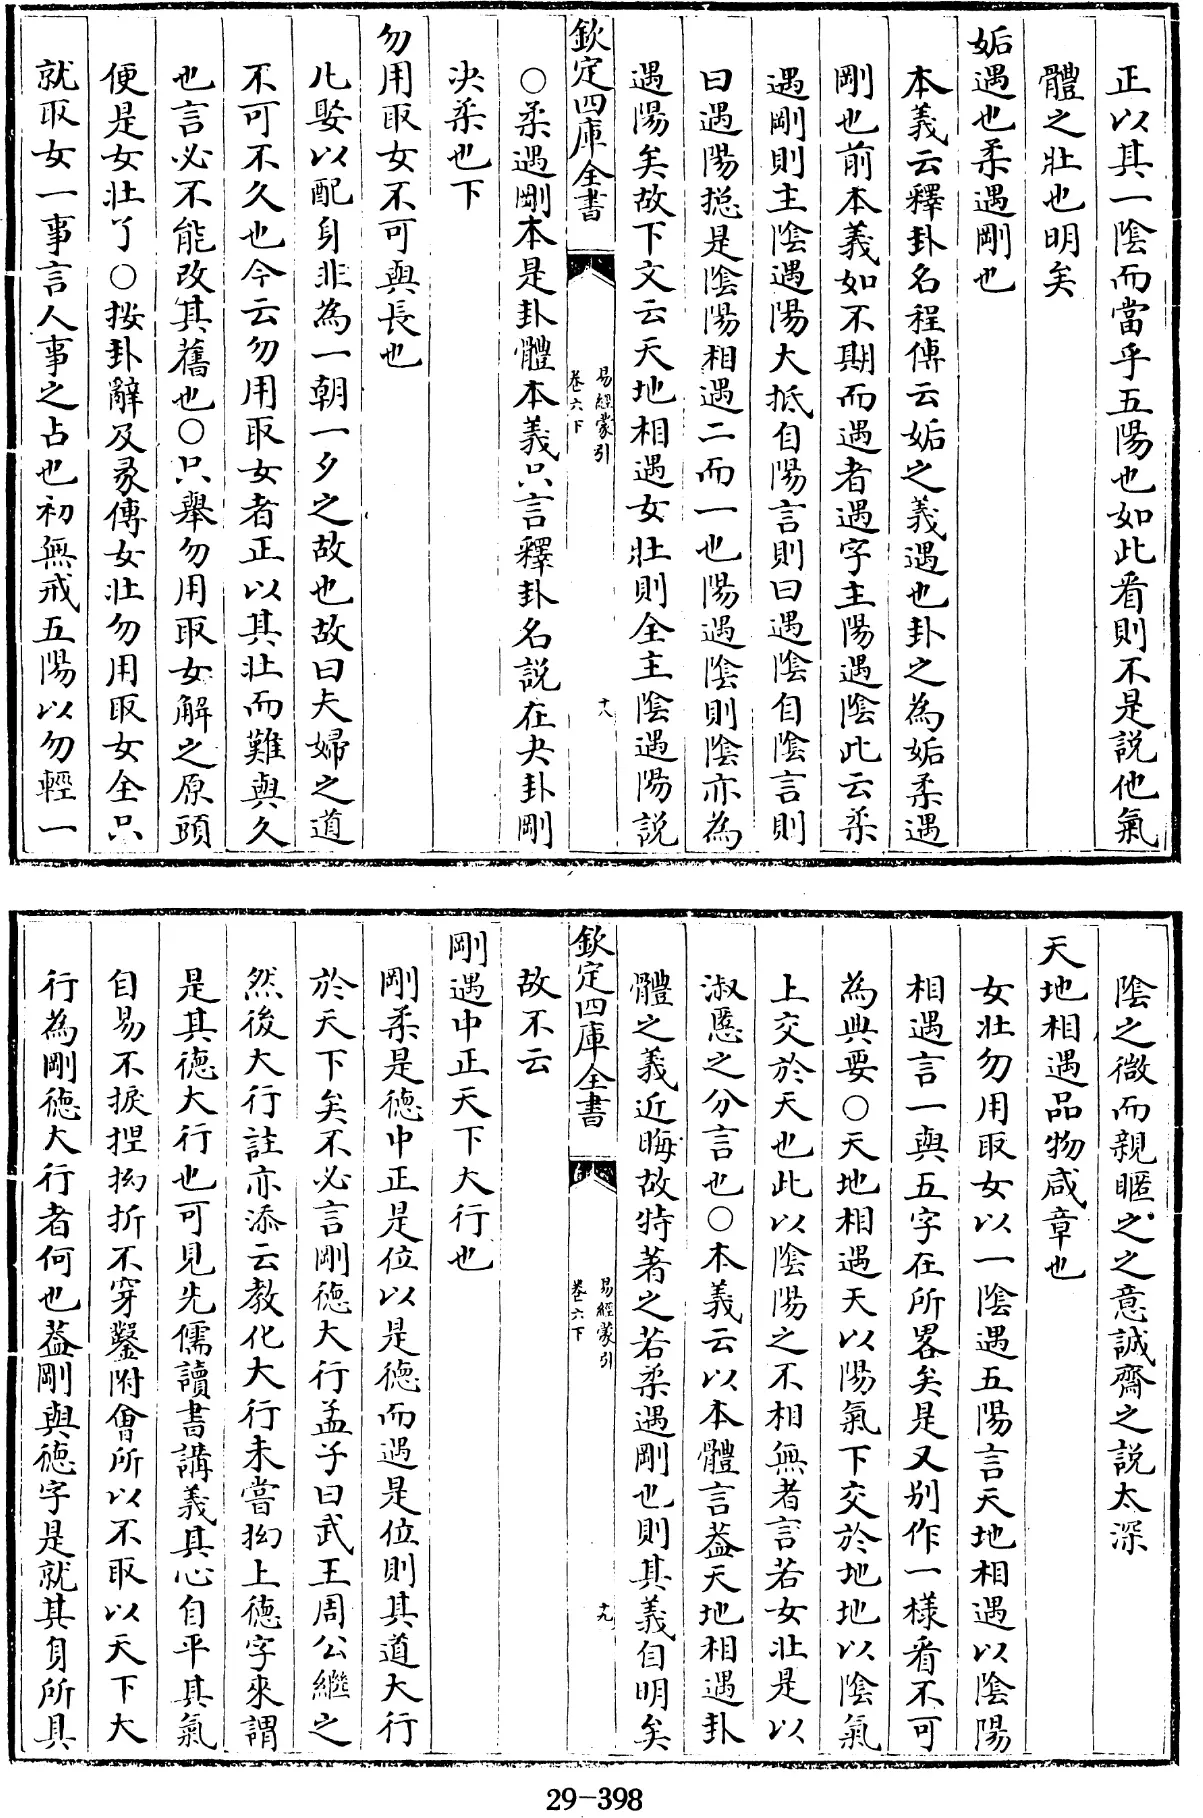 正以其一陰而當乎五陽也如此看則不是說他氣
體之壯也明矣
姤遇也柔遇剛也
本義云釋卦名程傳云姤之義遇也卦之為姤柔遇
剛也前本義如不期而遇者遇字主陽遇陰此云柔
遇剛則主陰遇陽大抵自陽言則曰遇陰自陰言則
曰遇陽摠是陰陽相遇二而一也陽遇陰則陰亦為
遇陽矣故下文云天地相遇女壯則全主陰遇陽說
欽定四庫全書
易經蒙引
卷六下
十八
○柔遇剛本是卦體本義只言釋卦名説在夬卦剛
決柔也下
勿用取女不可與長也
凡娶以配身非為一朝一夕之故也故曰夫婦之道
不可不久也今云勿用取女者正以其壯而難與久
也言必不能改其舊也○只舉勿用取女解之原頭
便是女壯了○按卦辭及彖傳女壯勿用取女全只
就取女一事言人事之占也初無戒五陽以勿輕一
陰之微而親暱之之意誠齋之說太深
天地相遇品物咸章也
女壯勿用取女以一陰遇五陽言天地相遇以陰陽
相遇言一與五字在所畧矣是又别作一樣看不可
為典要○天地相遇天以陽氣下交於地地以陰氣
上交於天也此以陰陽之不相無者言若女壯是以
淑慝之分言也○本義云以本體言葢天地相遇卦
體之義近晦故特著之若柔遇剛也則其義自明矣
欽定四庫全書
易經蒙引
卷六下
十九
故不云
剛遇中正天下大行也
剛柔是德中正是位以是德而遇是位則其道大行
於天下矣不必言剛德大行孟子曰武王周公繼之
然後大行註亦添云教化大行未嘗拗上德字來謂
是其德大行也可見先儒讀書講義其心自平其氣
自易不捩捏拗折不穿鑿附會所以不取以天下大
行為剛德大行者何也葢剛與德字是就其身所具
29-398